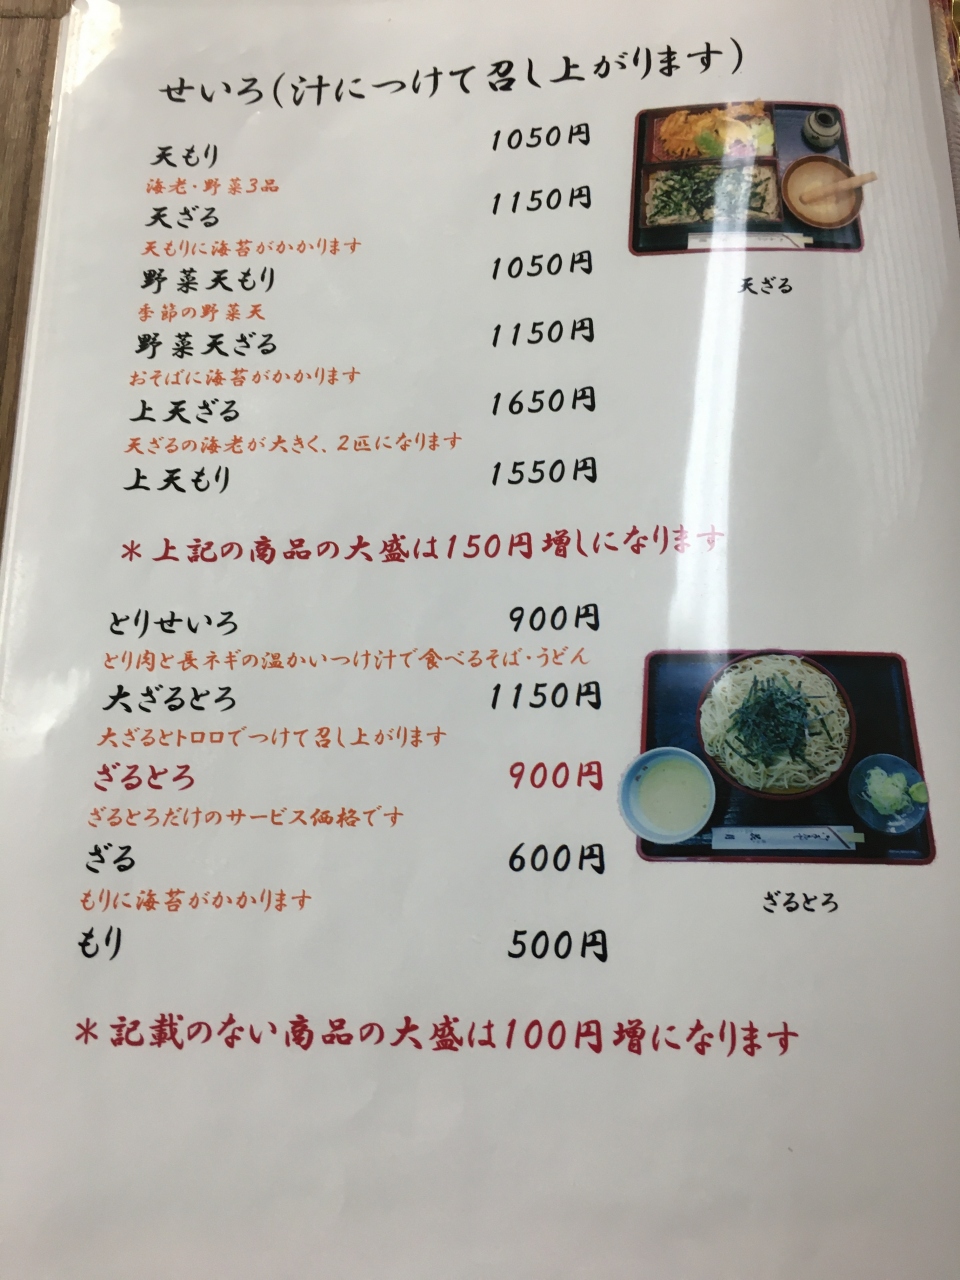 せいろ(汁につけて召し上がります)
天もり 1050円
海老・野菜3品
天ざる 1150円
天もりに海苔がかかります
野菜天もり 1050円
季節の野菜天
野菜天ざる 1150円
おそばに海苔がかかります
上天ざる 1650円
天ざるの海老が大きく、2匹になります
上天もり 1550円
天ざる
＊上記の商品の大盛は150円増しになります
とりせいろ 900円
とり肉と長ネギの温かいつけ汁で食べるそば・うどん
大ざるとろ 1150円
大ざるとトロロでつけて召し上がります
ざるとろ 900円
ざるとろだけのサービス価格です
ざる 600円
もりに海苔がかかります
もり 500円
ざるとろ
＊記載のない商品の大盛は100円増になります